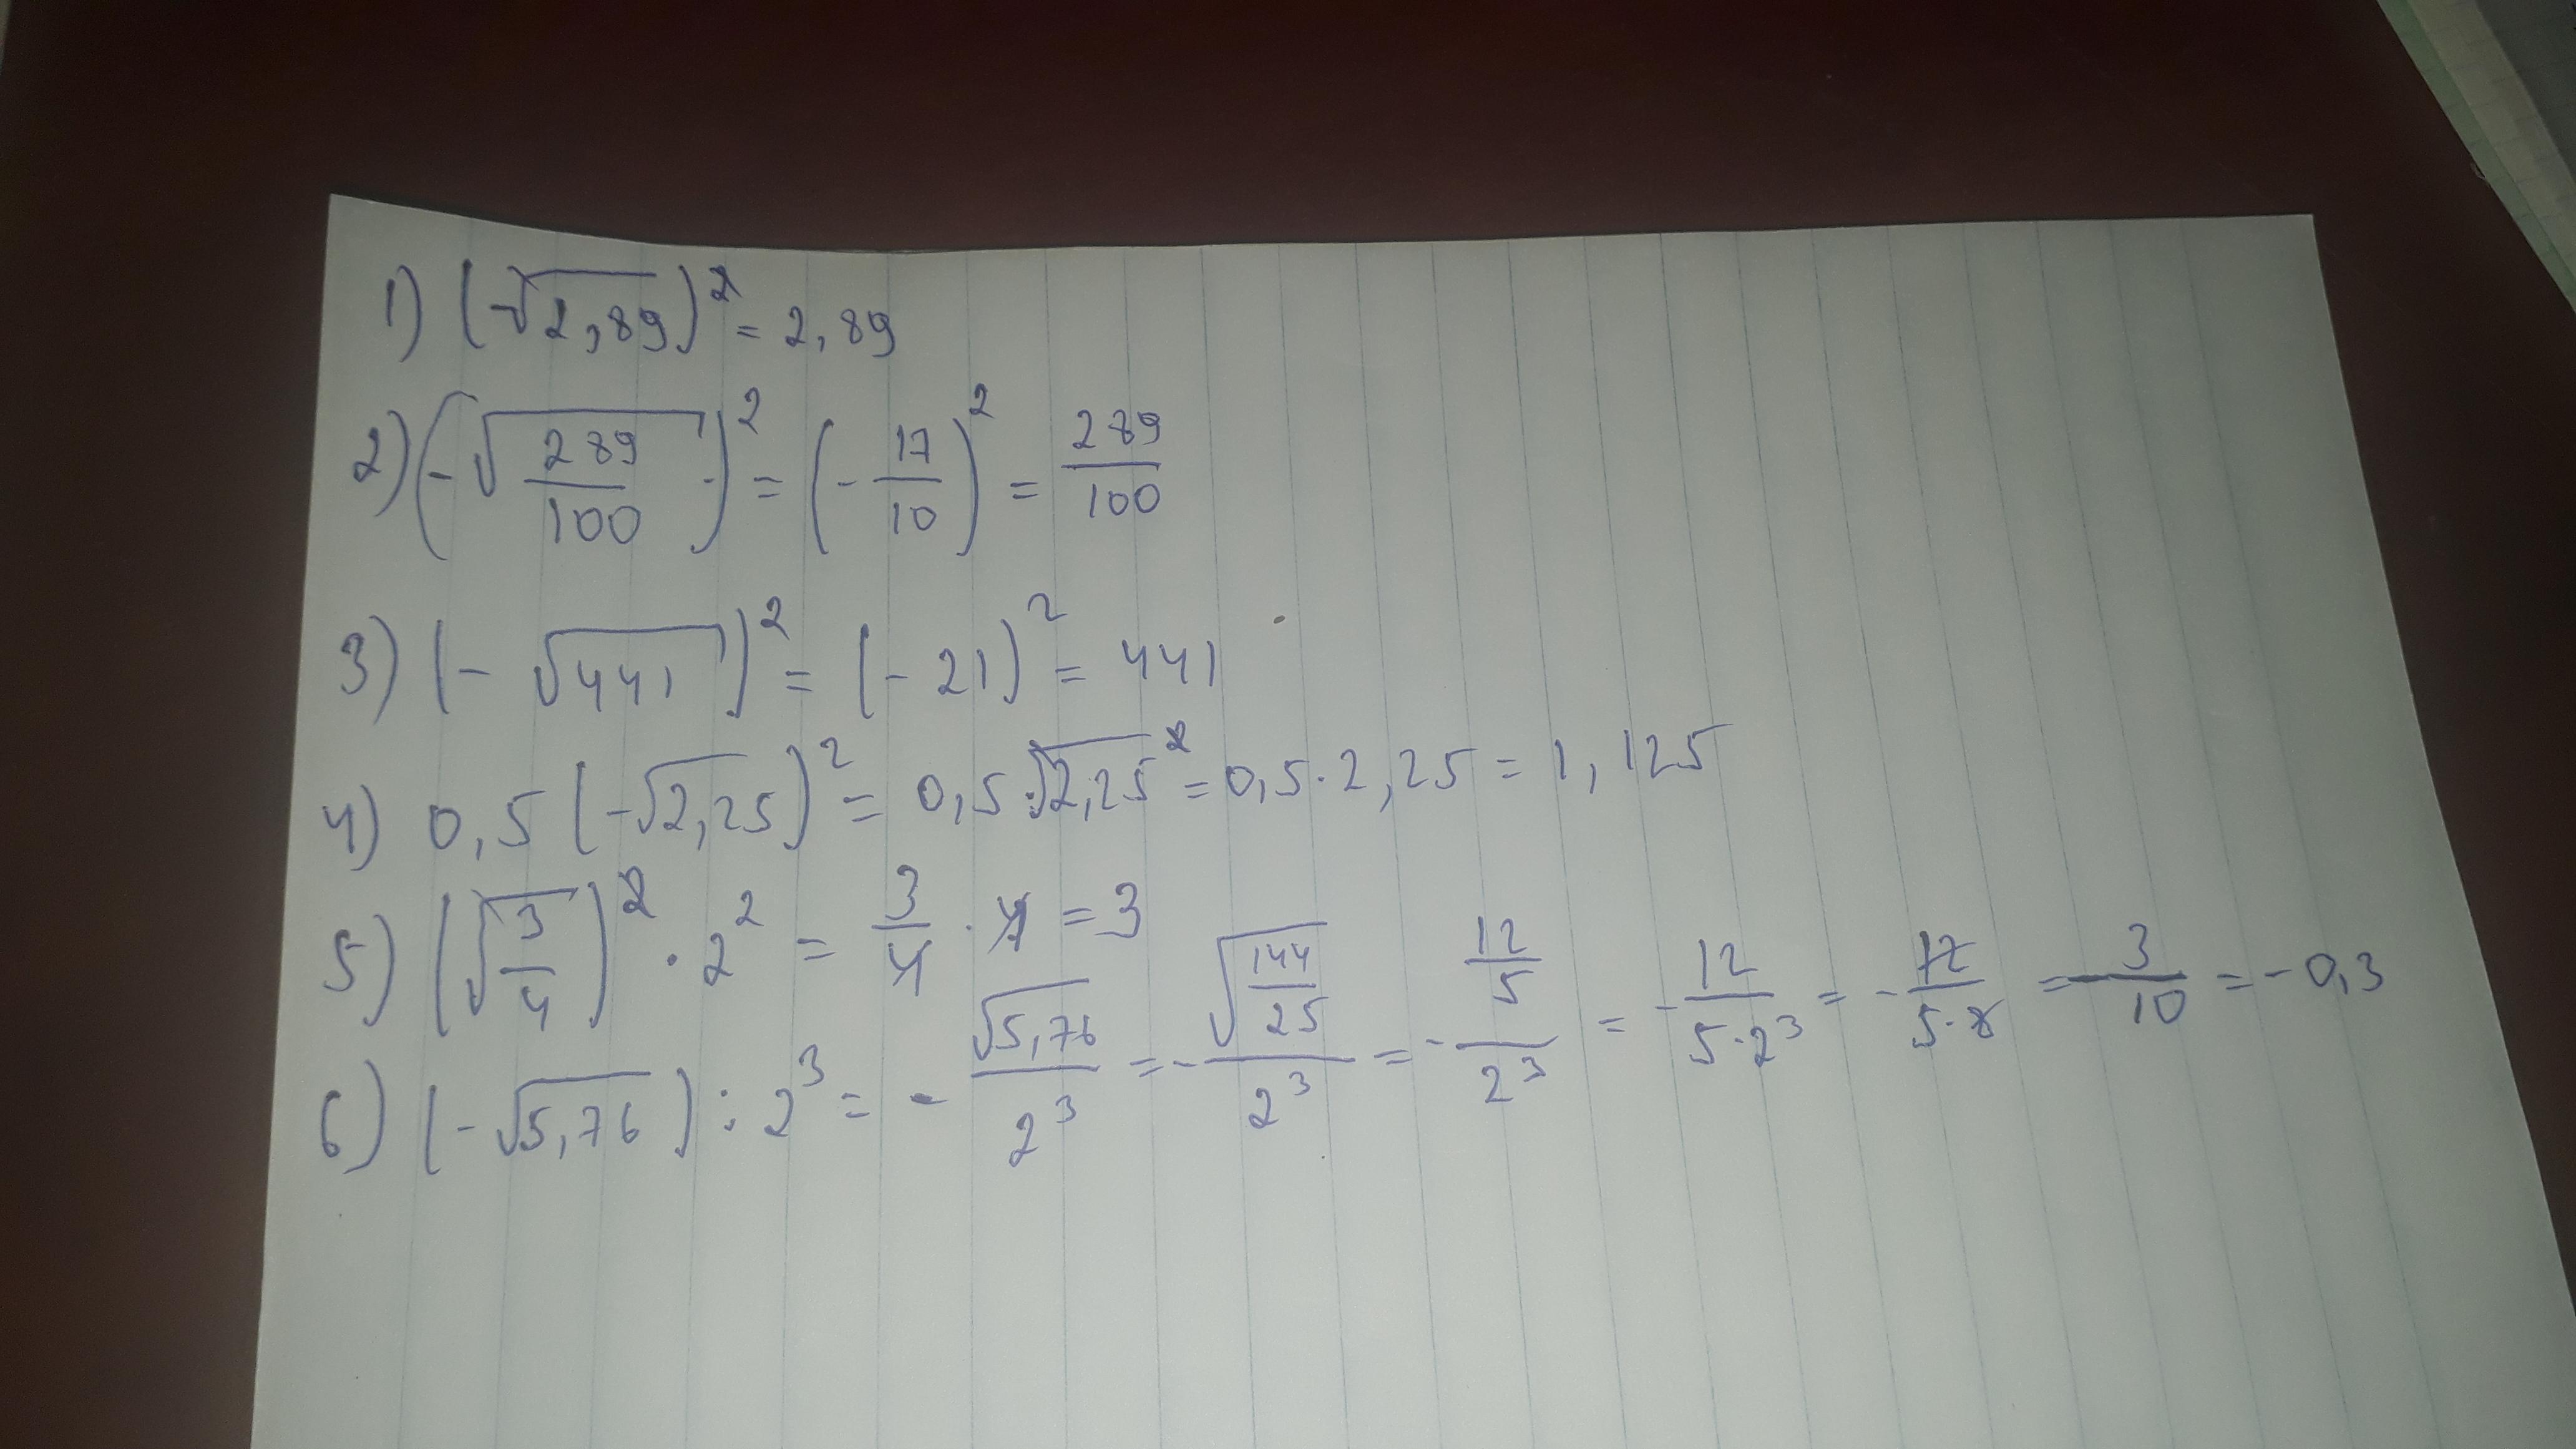 1) (√2,89)² = 2,89
2) (-√(289/100))² = (-17/10)² = 289/100
3) (-√441)² = (-21)² = 441
4) 0,5 (-√2,25)² = 0,5·√2,25² = 0,5·2,25 = 1,125
5) (√(3/4))² · 2² = 3/4 · 4 = 3
6) (-√5,76) : 2³ = - √5,76/2³ = - √(144/25)/2³ = - (12/5)/2³ = - 12/(5·2³) = - 12/(5·8) = - 3/10 = - 0,3